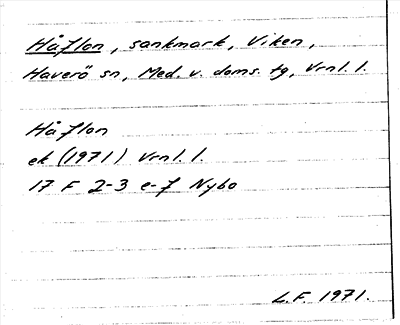 Håflon, sankmark, Viken,
Haverö sn, Med. v. doms. tg, Vrnl. l.
Håflon
ek (1971) Vrnl. l.
17 F 2-3 e-f Nybo
L.F. 1971.